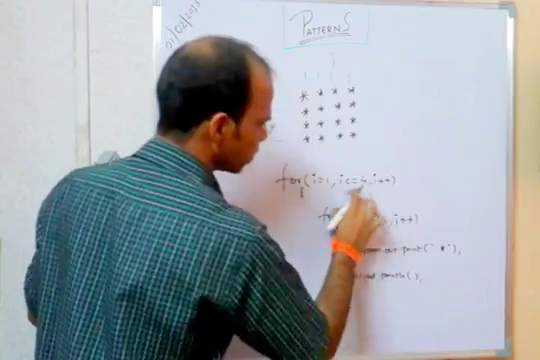 01/02/2023
PATTERNS
* * * *
* * * *
* * * *
* * * *
for(i=1, i<=4, i++)
{
,j++)
out.print(" *");
println();